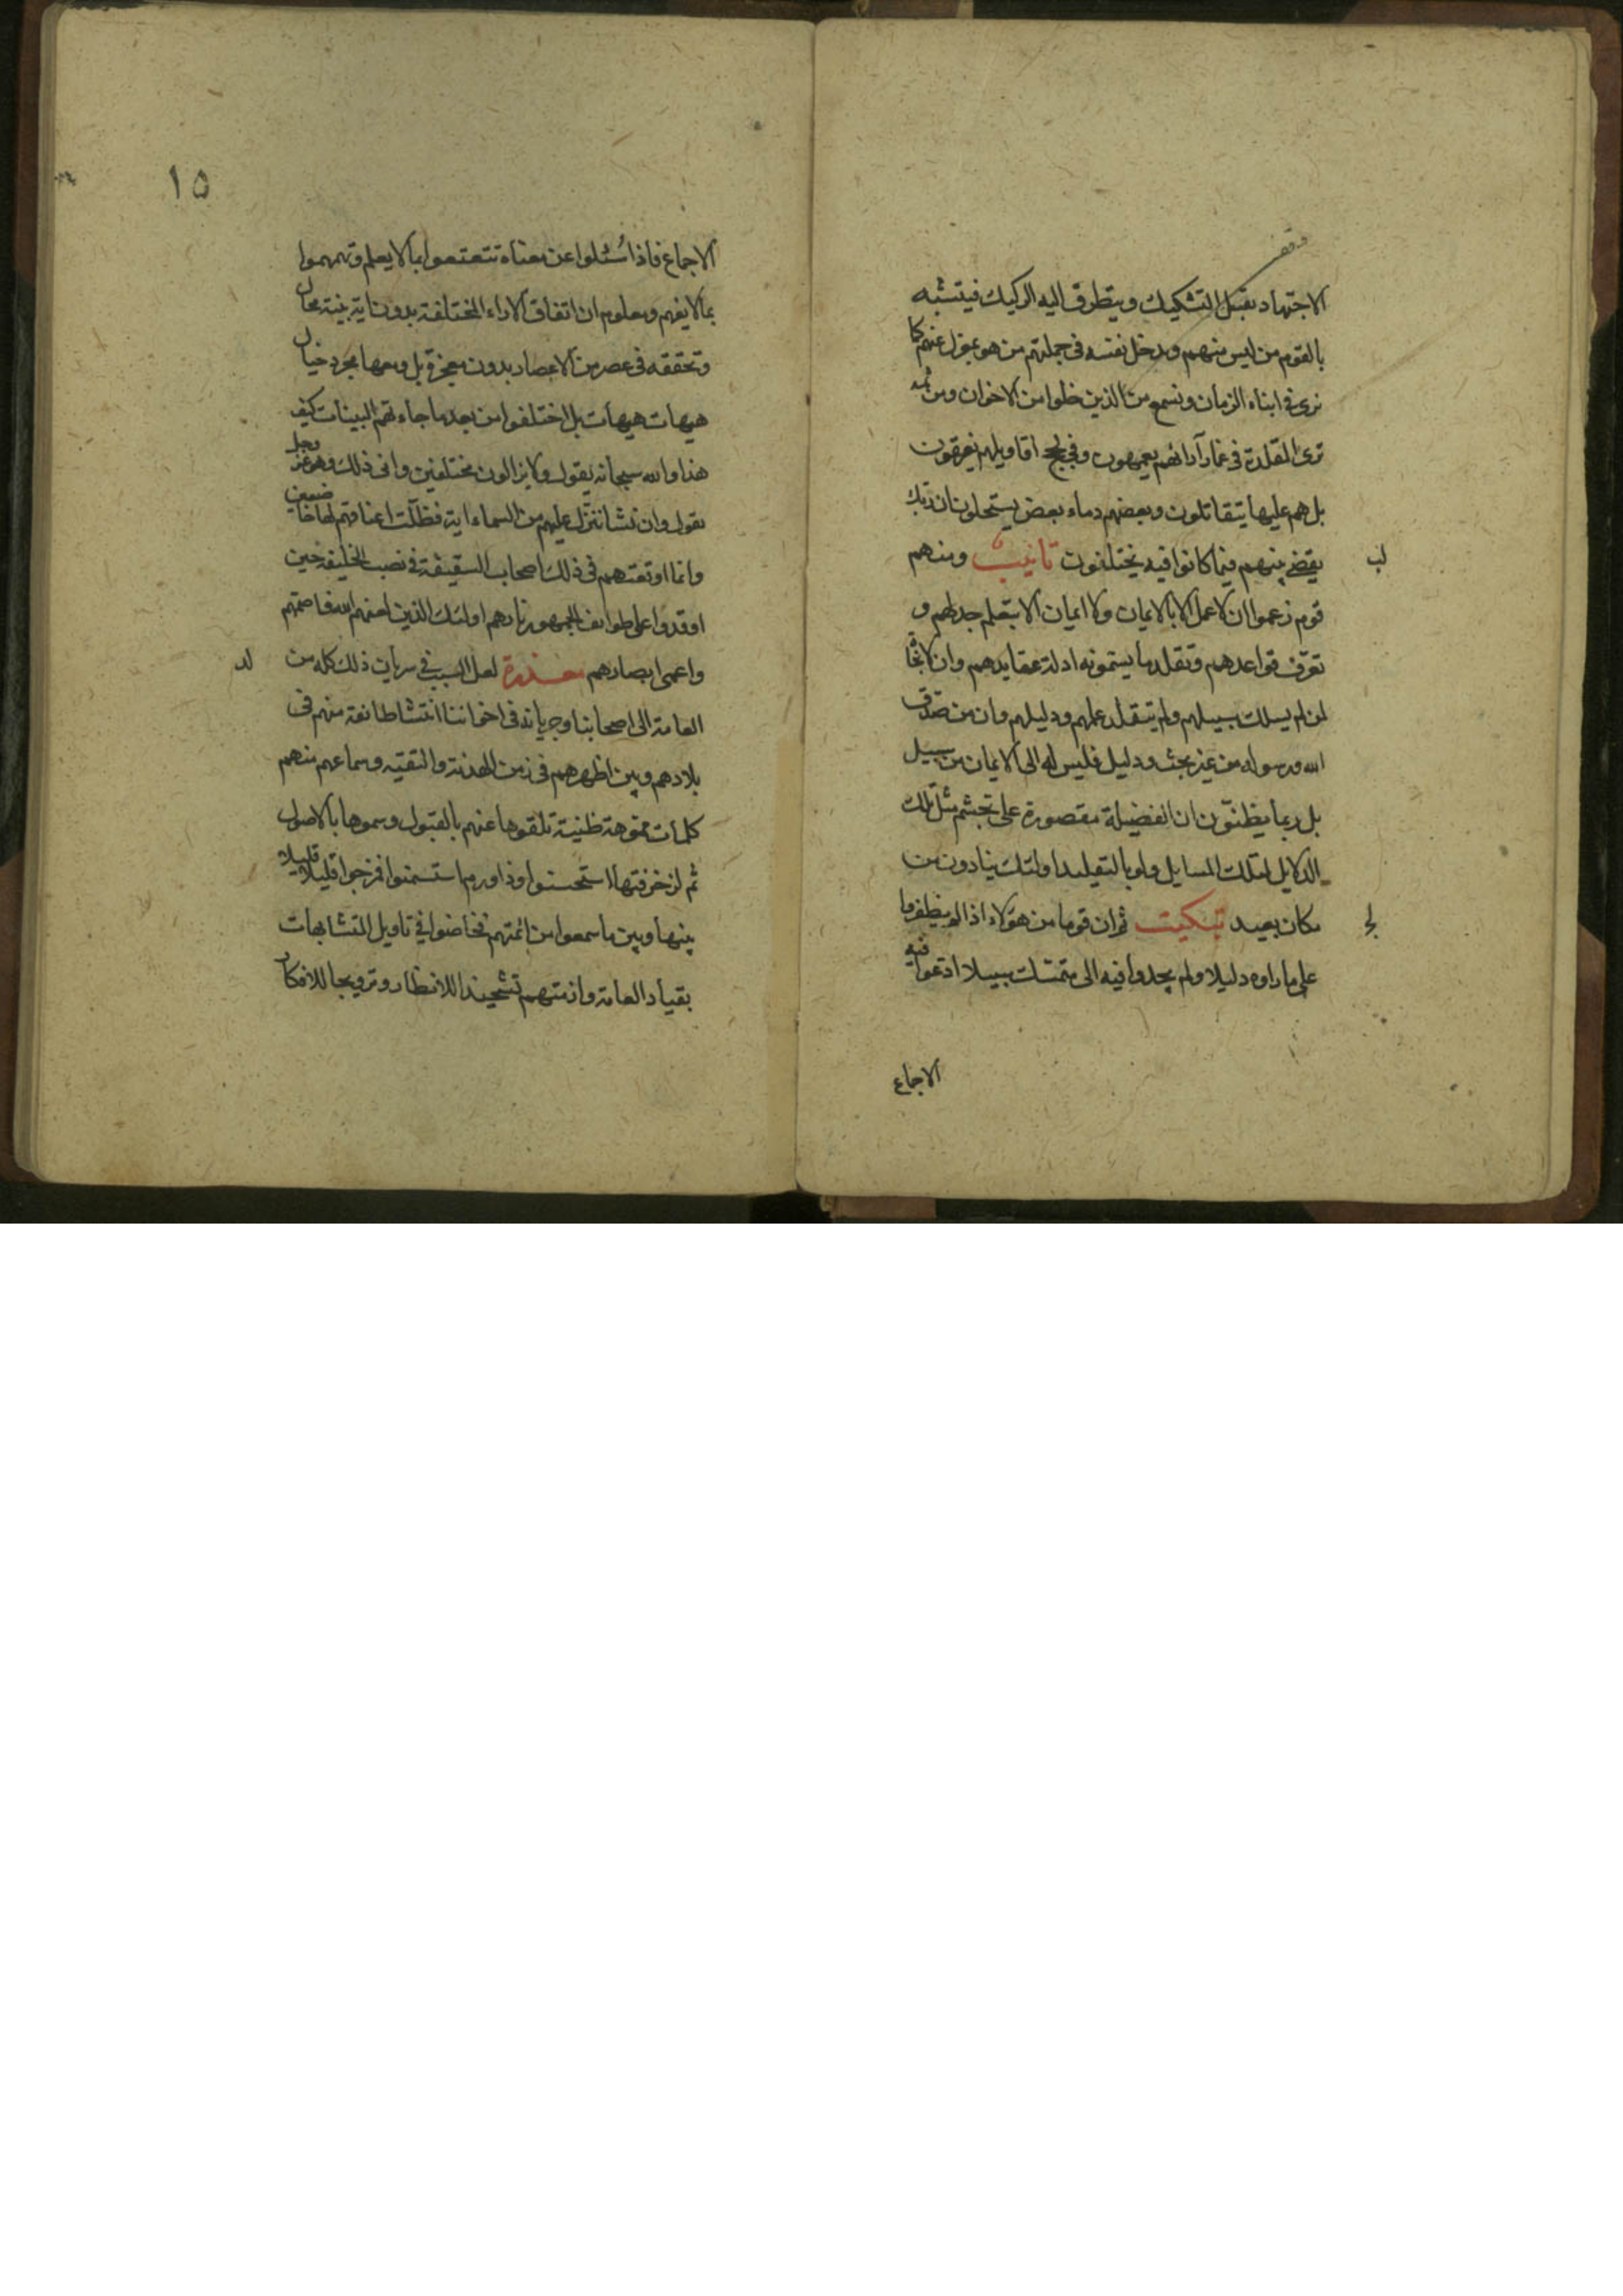 وقف
الاجتهاد يقبل التشكيك ويتطرق اليه الركيك فيتشبه
بالقوم من ليس منهم ويدخل نفسه في جملتهم من هو بمعزل عنهم كما
نرى في ابناء الزمان ونسمع من الذين خلوا من الاخوان ومن ثمه
ترى المقلدة في غمار آرائهم يعمهون وفي لجج اقاويلهم يغرقون
بل هم عليها يتقاتلون وبعضهم دماء بعض يستحلون ان ربك
يقضي بينهم فيما كانوا فيه يختلفون تانيب ومنهم
لب
قوم زعموا ان لا عمل الا بالايمان ولا ايمان الا بتعلم جدلهم و
تعرّف قواعدهم وتقلد ما يسمونه ادلة عقايدهم وان لا نجاة
لمن لم يسلك سبيلهم ولم يتقلد علمهم ودليلهم وان من صدق
الله ورسوله من غير بحث ودليل فليس له الى الايمان من سبيل
بل ربما يظنّون ان الفضيلة مقصورة على تجشم مثل تلك
الدلايل لتلك المسايل ولو بالتقليد اولئك ينادون من
مكان بعيد تبكيت ثم ان قوما من هؤلاء اذا لم يظفروا
لج
على ما راوه دليلا ولم يجدوا فيه الى متمسك سبيلا ادعوا فيه
الاجماع
١٥
الاجماع فاذا سُئلوا عن معناه تتعتعوا بما لا يعلم وتمهموا
بما لا يفهم ومعلوم ان اتفاق الاراء المختلفة بدون اية بينة محال
وتحققه في عصر من الاعصار بدون معجزة بل ومعها مجرد خيال
هيهات هيهات بل اختلفوا من بعد ما جاءتهم البينات كيف
هذا والله سبحانه يقول ولا يزالون مختلفين وانى ذلك وهو عز وجل
يقول وان نشا ننزّل عليهم من السماء اية فظلّت اعناقهم لها خاضعين
وانما اوقعتهم في ذلك اصحاب السقيفة في نصب الخليفة حين
اوقدوا على طوايف الجمهور نارهم اولئك الذين لعنهم الله فاصمّهم
واعمى ابصارهم معذرة لعل السبب في سريان ذلك كله من
لد
العامة الى اصحابنا وجريانه في اخواننا انتشا طائفة منهم في
بلادهم وبين اظهرهم في زمن الهدنة والتقية وسماعهم منهم
كلمات مموهة ظنية تلقوها عنهم بالقبول وسموها بالاصول
ثم لزخرفتها استحسنوا وذا ورم استسمنوا فمزجوا قليلا قليلا
بينها وبين ما سمعوا من ائمتهم فخاضوا في تاويل المتشابهات
بقياد العامة وازمتهم تشحيذا للانظار وترويجا للافكار